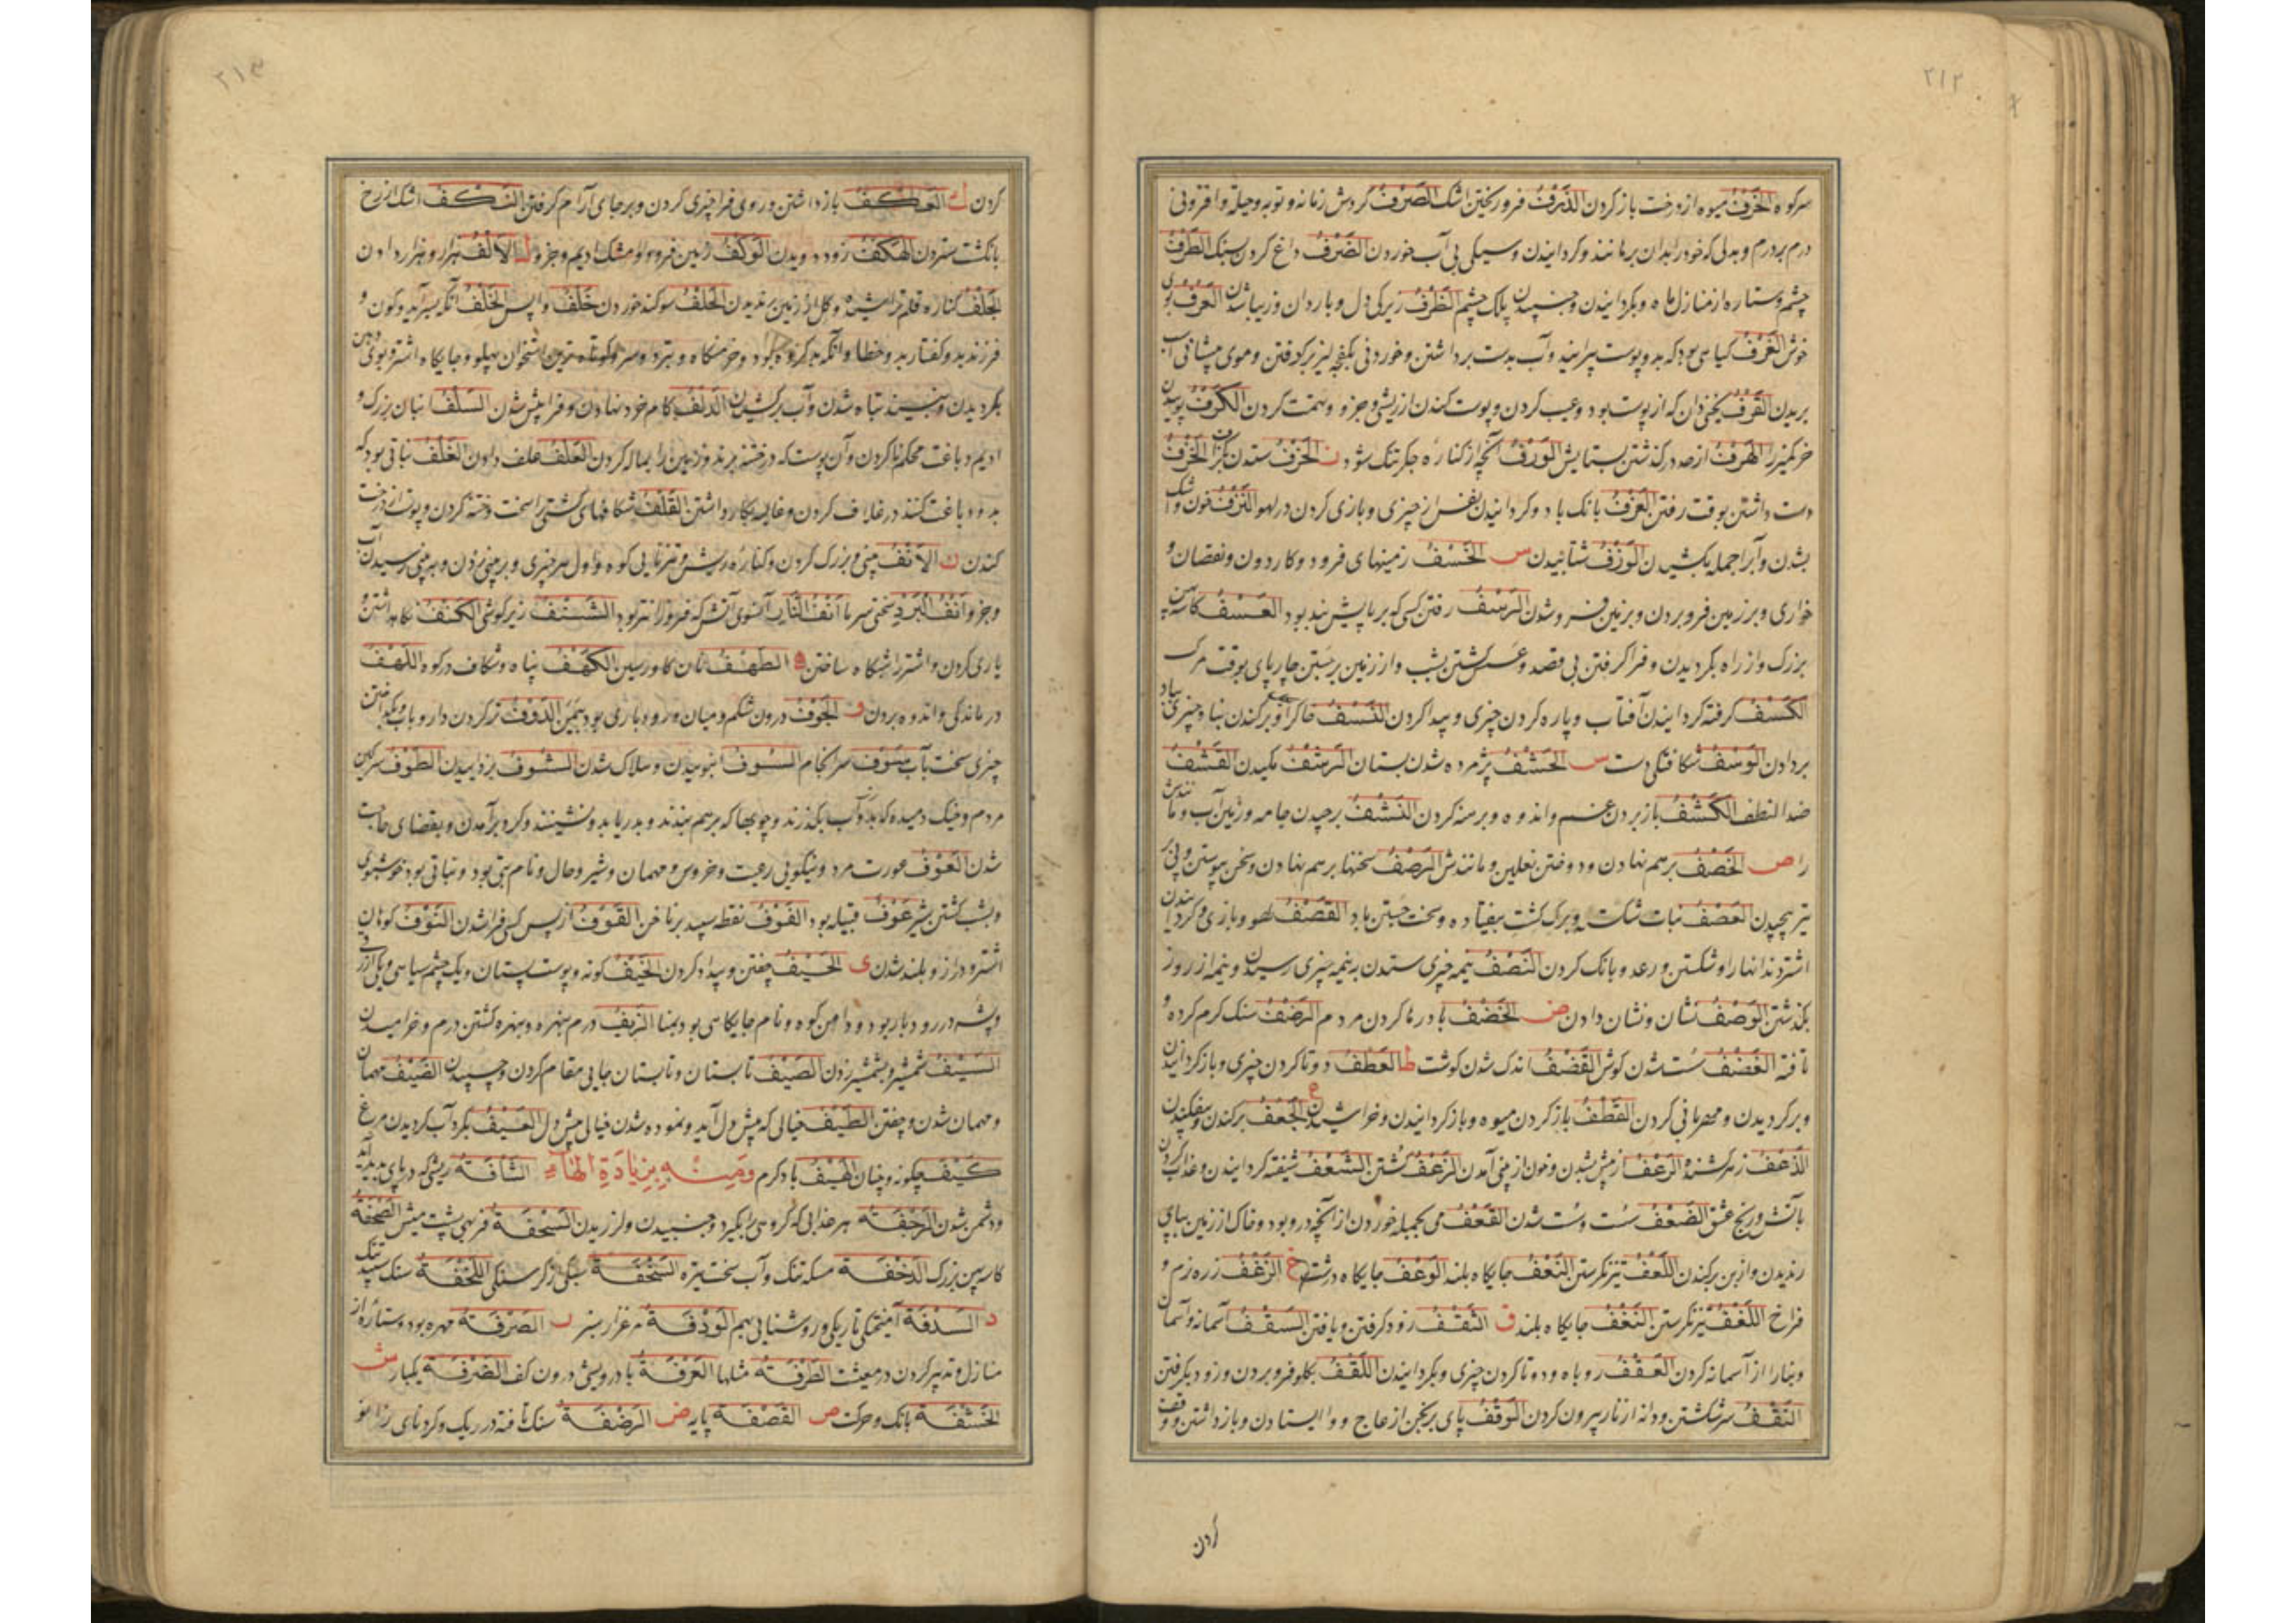 ۲۱۲
سر کوه الخَرْفُ میوه از درخت باز کردن الذَّرْفُ فرو ریختن اشک الصَّرْفُ گردش زمانه و توبه و حیله و افزونی
درم بر درم و بدلی که خود را بدان برمانند و کردانیدن و سیکی بی آب خوردن الضَّرْفُ داغ کردن سنک الطَّرْفُ
چشم و ستاره از منازل ماه و بکردانیدن و جنبیدن پلک چشم الظَّرْفُ زیرکی دل و باردان و زیبا شدن العَرْفُ بوی
خوش الغَرْفُ کیاهی بود که بدو پوست پیرایند و آب بدست برداشتن و خوردنی بکفچلیز برکرفتن و موی پیشانی
بریدن القَرْفُ یخنی دان که از پوست بود و عیب کردن و پوست کندن از ریش و جزو و تهمت کردن الکَرْفُ بوییدن
خر کمیز را الهَرْفُ از حد درکذشتن بستایش الوَرْفُ آنچه از کناره جکر تنک شود ز الحَزْفُ ستدن الخَزْفُ
دست داشتن بوقت رفتن العَزْفُ بانک باد و کردانیدن نفس از چیزی و بازی کردن در لهو النَّزْفُ خون و اشک
بشدن و آب را جمله بکشیدن الوَزْفُ شتابانیدن س الخَسْفُ زمینهای فرود و کاردون و نقصان و
خواری و بر زمین فرو بردن و بر زمین فرو شدن الرَّسْفُ رفتن کسی که بر پایش بند بود العَسْفُ کاسه
بزرک و از راه بکردیدن و فرا کرفتن بی قصد و عسس کشتن بشب و از زمین برجستن چارپای بوقت مرک
الکَسْفُ کرفته کردانیدن آفتاب و پاره کردن چیزی و پیدا کردن النَّسْفُ خاک برآوردن و برکندن بنا و چیزی بباد
بردادن الوَسْفُ شکافتکی دست ش الحَشْفُ پژمرده شدن پستان الرَّشْفُ مکیدن القَشْفُ
ضد النظف الکَشْفُ باز بردن غم و اندوه و برهنه کردن النَّشْفُ برچیدن جامه و زمین آب و مانندش
را ص الخَصْفُ بر هم نهادن و دوختن نعلین و مانندش الرَّصْفُ سختها بر هم نهادن و سخن پیوستن و پی بر
تیر پیچیدن العَصْفُ نبات شکسته و برک کشت بیفتاده و سخت جستن باد القَصْفُ لهو و بازی و کردانیدن
اشتر دندانها را و شکستن و رعد و بانک کردن النَّصْفُ نیمه چیزی ستدن به نیمه چیزی رسیدن و نیمه از روز
بکذشتن الوَصْفُ نشان و نشان دادن ض الخَضْفُ باد رها کردن مردم الرَّضْفُ سنک کرم کرده و
تافته الغَضْفُ سست شدن کوش القَضْفُ اندک شدن کوشت ط العَطْفُ دوتا کردن چیزی و باز کردانیدن
و برکردیدن و مهربانی کردن القَطْفُ باز کردن میوه و باز کردانیدن و خراشیدن ع الجَعْفُ برکندن و بیفکندن
الذَّعْفُ زهر کشنده الرَّعْفُ از پیش شدن و خون از بینی آمدن الزَّعْفُ کشتن الشَّعْفُ شیفته کردانیدن و عذاب کردن
بآتش و رنج عشق الضَّعْفُ سست و سست شدن القَعْفُ می بجمله خوردن از آنچه درو بود و خاک از زمین بپای
رندیدن و از بن برکندن اللَّعْفُ تیز نکرستن النَّعْفُ جایکاه بلند الوَعْفُ جایکاه درشت غ الزَّغْفُ زره نرم و
فراخ اللَّغْفُ تیز نکرستن النَّغْفُ جایکاه بلند ق الثَّقْفُ زود کرفتن و یافتن السَّقْفُ آسمانه و آسمان
و بنا را از آسمانه کردن العَقْفُ روباه و دوتا کردن چیزی و بکردانیدن اللَّقْفُ بکلو فرو بردن و زود بکرفتن
النَّقْفُ سر شکستن و دانه از نار بیرون کردن الوَقْفُ پای برنجن از عاج و وا ایستادن و باز داشتن و وقف
کردن
۲۱۳
کردن ک العَکْفُ باز داشتن و روی فرا چیزی کردن و بر جای آرام کرفتن النَّکْفُ اشک از رخ
بانکشت ستردن الهَکْفُ زود دویدن الوَکْفُ زمین فرو و مشک ادیم و جزو ل الاَلْفُ هزار و هزار دادن
الجَلْفُ کناره قلم تراشیده و کل از زمین برندیدن الحَلْفُ سوکند خوردن خَلْفُ واپس الخَلْفُ آنکه بسرآید و کون و
فرزند بد و کفتار بد و خطا و آنکه بد کروه بود و خرمنکاه و تبر دوسر و کوتاه‌ترین استخوان پهلو و جایکاه اشتر و بوی دهن
بکردیدن و نبیند تباه شدن و آب برکشیدن الدَّلْفُ کام خرد نهادن و فرا پیش شدن السَّلْفُ انبان بزرک و
ادیم دباغت محکم ناکردن و آن پوست که درخت برند و زمین را بماله کردن العَلْفُ علف دادن الغَلْفُ نباتی بود که
بدو دباغت کنند در غلاف کردن و غالیه بکار داشتن القَلْفُ شکافهای کشتی را سخت و ختنه کردن و پوست از درخت
کندن ن الاَنْفُ بینی و بزرک کردن و کناره ریش و تیزنایی کوه و اول هر چیزی و بر بینی زدن و به بینی رسیدن آب
و جزو اَنْفُ البَرْدِ سختی سرما اَنْفُ النَّارِ آنسوی آتش که فروزانتر بود الشَّنْفُ زیر کوشی الکَنْفُ نکاه داشتن و
یاری کردن و اشتر را شبکاه ساختن ه الطَّهْفُ نان کاورسین الکَهْفُ پناه و شکاف در کوه اللَّهْفُ
درماندکی و اندوه بردن و الجَوْفُ درون شکم و میان و رودباری بود بیمن الدَّوْفُ تر کردن دارو بآب و بکداختن
چیزی سخت بآب سَوْفَ سرانجام السَّوْفُ انبوییدن و هلاک شدن الشَّوْفُ بزداییدن الطَّوْفُ سرکین
مردم و خیک دمیده که بدو آب بکذرند و چوبها که بر هم بندند و بدریا بدو نشینند و کرد برآمدن و بقضای حاجت
شدن العَوْفُ عورت مرد و نیکویی رعیت و خروس و مهمان و شیر و حال و نام بتی بود و نباتی بود خوشبوی
و بشب کشتن شیر عَوْفٌ قبیله بود الفَوْفُ نقطه سپید بر ناخن القَوْفُ از پس کسی فرا شدن النَّوْفُ کوهان
اشتر و دراز و بلند شدن ی الحَیْفُ چفتن و بیداد کردن الخَیْفُ کونه و پوست پستان و یک چشم سیاهی و یکی ازرق
و پشته در رودبار بود و دامن کوه و نام جایکاهی بود بمنا الزَّیْفُ درم نبهره و نبهره کشتن درم و خرامیدن
السَّیْفُ شمشیر و بشمشیر زدن الصَّیْفُ تابستان و تابستان جایی مقام کردن و چسپیدن الضَّیْفُ مهمان
و مهمان شدن و چفتن الطَّیْفُ خیالی که پیش دل آید و نموده شدن خیالی پیش دل العَیْفُ بکرد آب کردیدن مرغ
کَیْفَ چکونه و چنان الهَیْفُ باد کرم وَمِنْهُ بِزِیَادَةِ الهَآءِ الشَّافَةُ ریشی که در پای پدید آید
و دشمن شدن الرَّجْفَةُ هر عذابی که کروهی را بکیرد و جنبیدن و لرزیدن السَّحْفَةُ فربهی پشت میش الصَّحْفَةُ
کاسه پهن بزرک الدَّخْفَةُ مسکه تنک و آب سخت تیره السَّخْفَةُ سبکی از کرسنکی اللَّخْفَةُ سنک سپید تنک
د السَّدْفَةُ آمیختکی تاریکی و روشنایی بهم الوَدْفَةُ مرغزار سبز ر الصَّرْفَةُ مهره بود و ستاره از
منازل و تدبیر کردن در معیشت الطَّرْفَةُ مثلها العَرْفَةُ بادرویشی درون کف الغَرْفَةُ یکبار ش
الخَشْفَةُ بانک و حرکت ص القَصْفَةُ پایه ض الرَّضْفَةُ سنک تافته در ریک و کردنای زانو